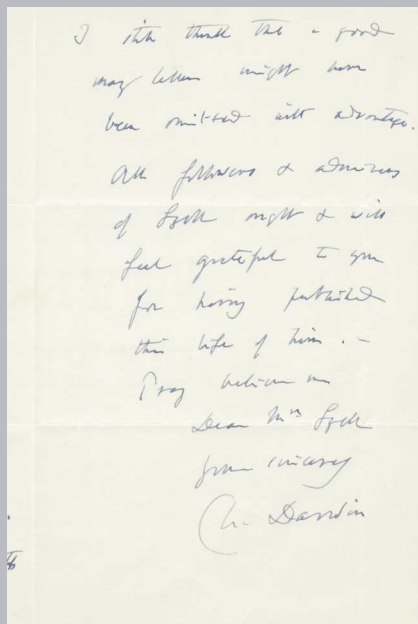 I still think that a good
many letters might have
been omitted with advantage.
All followers & admirers
of Lyell ought & will
feel grateful to you
for having published
this life of him. —
Pray believe me
Dear Mrs Lyell
yours sincerely
Ch. Darwin